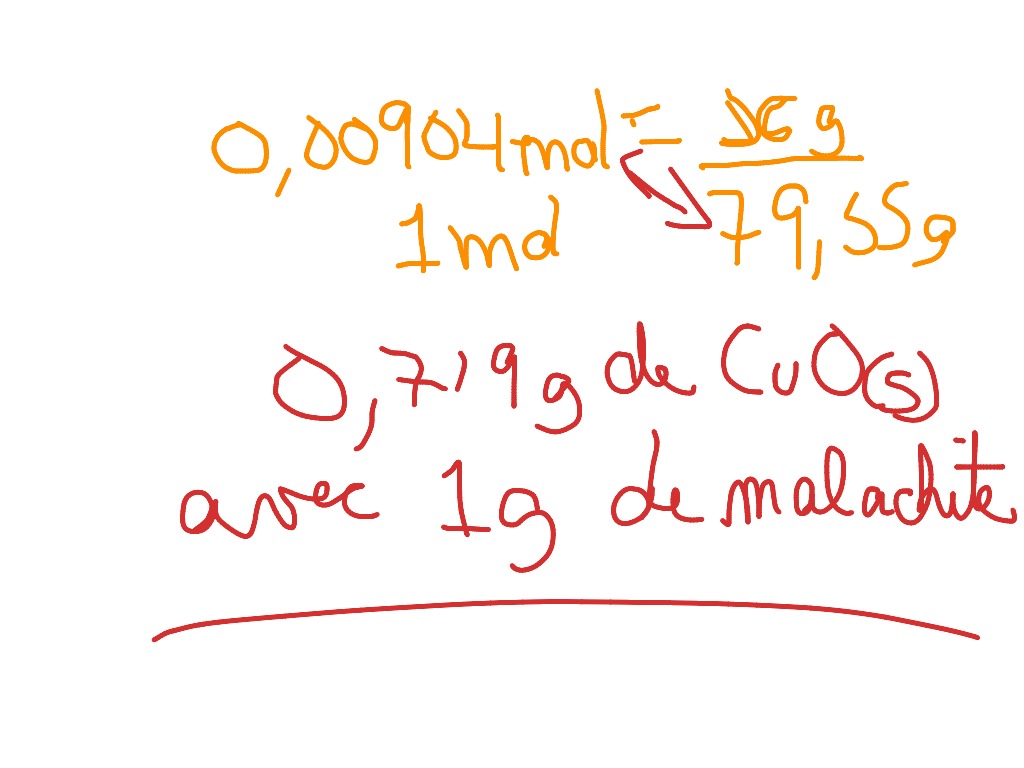 0,00904mol = x g
1 mol 79,55g
0,719g de CuO(s)
avec 1g de malachite